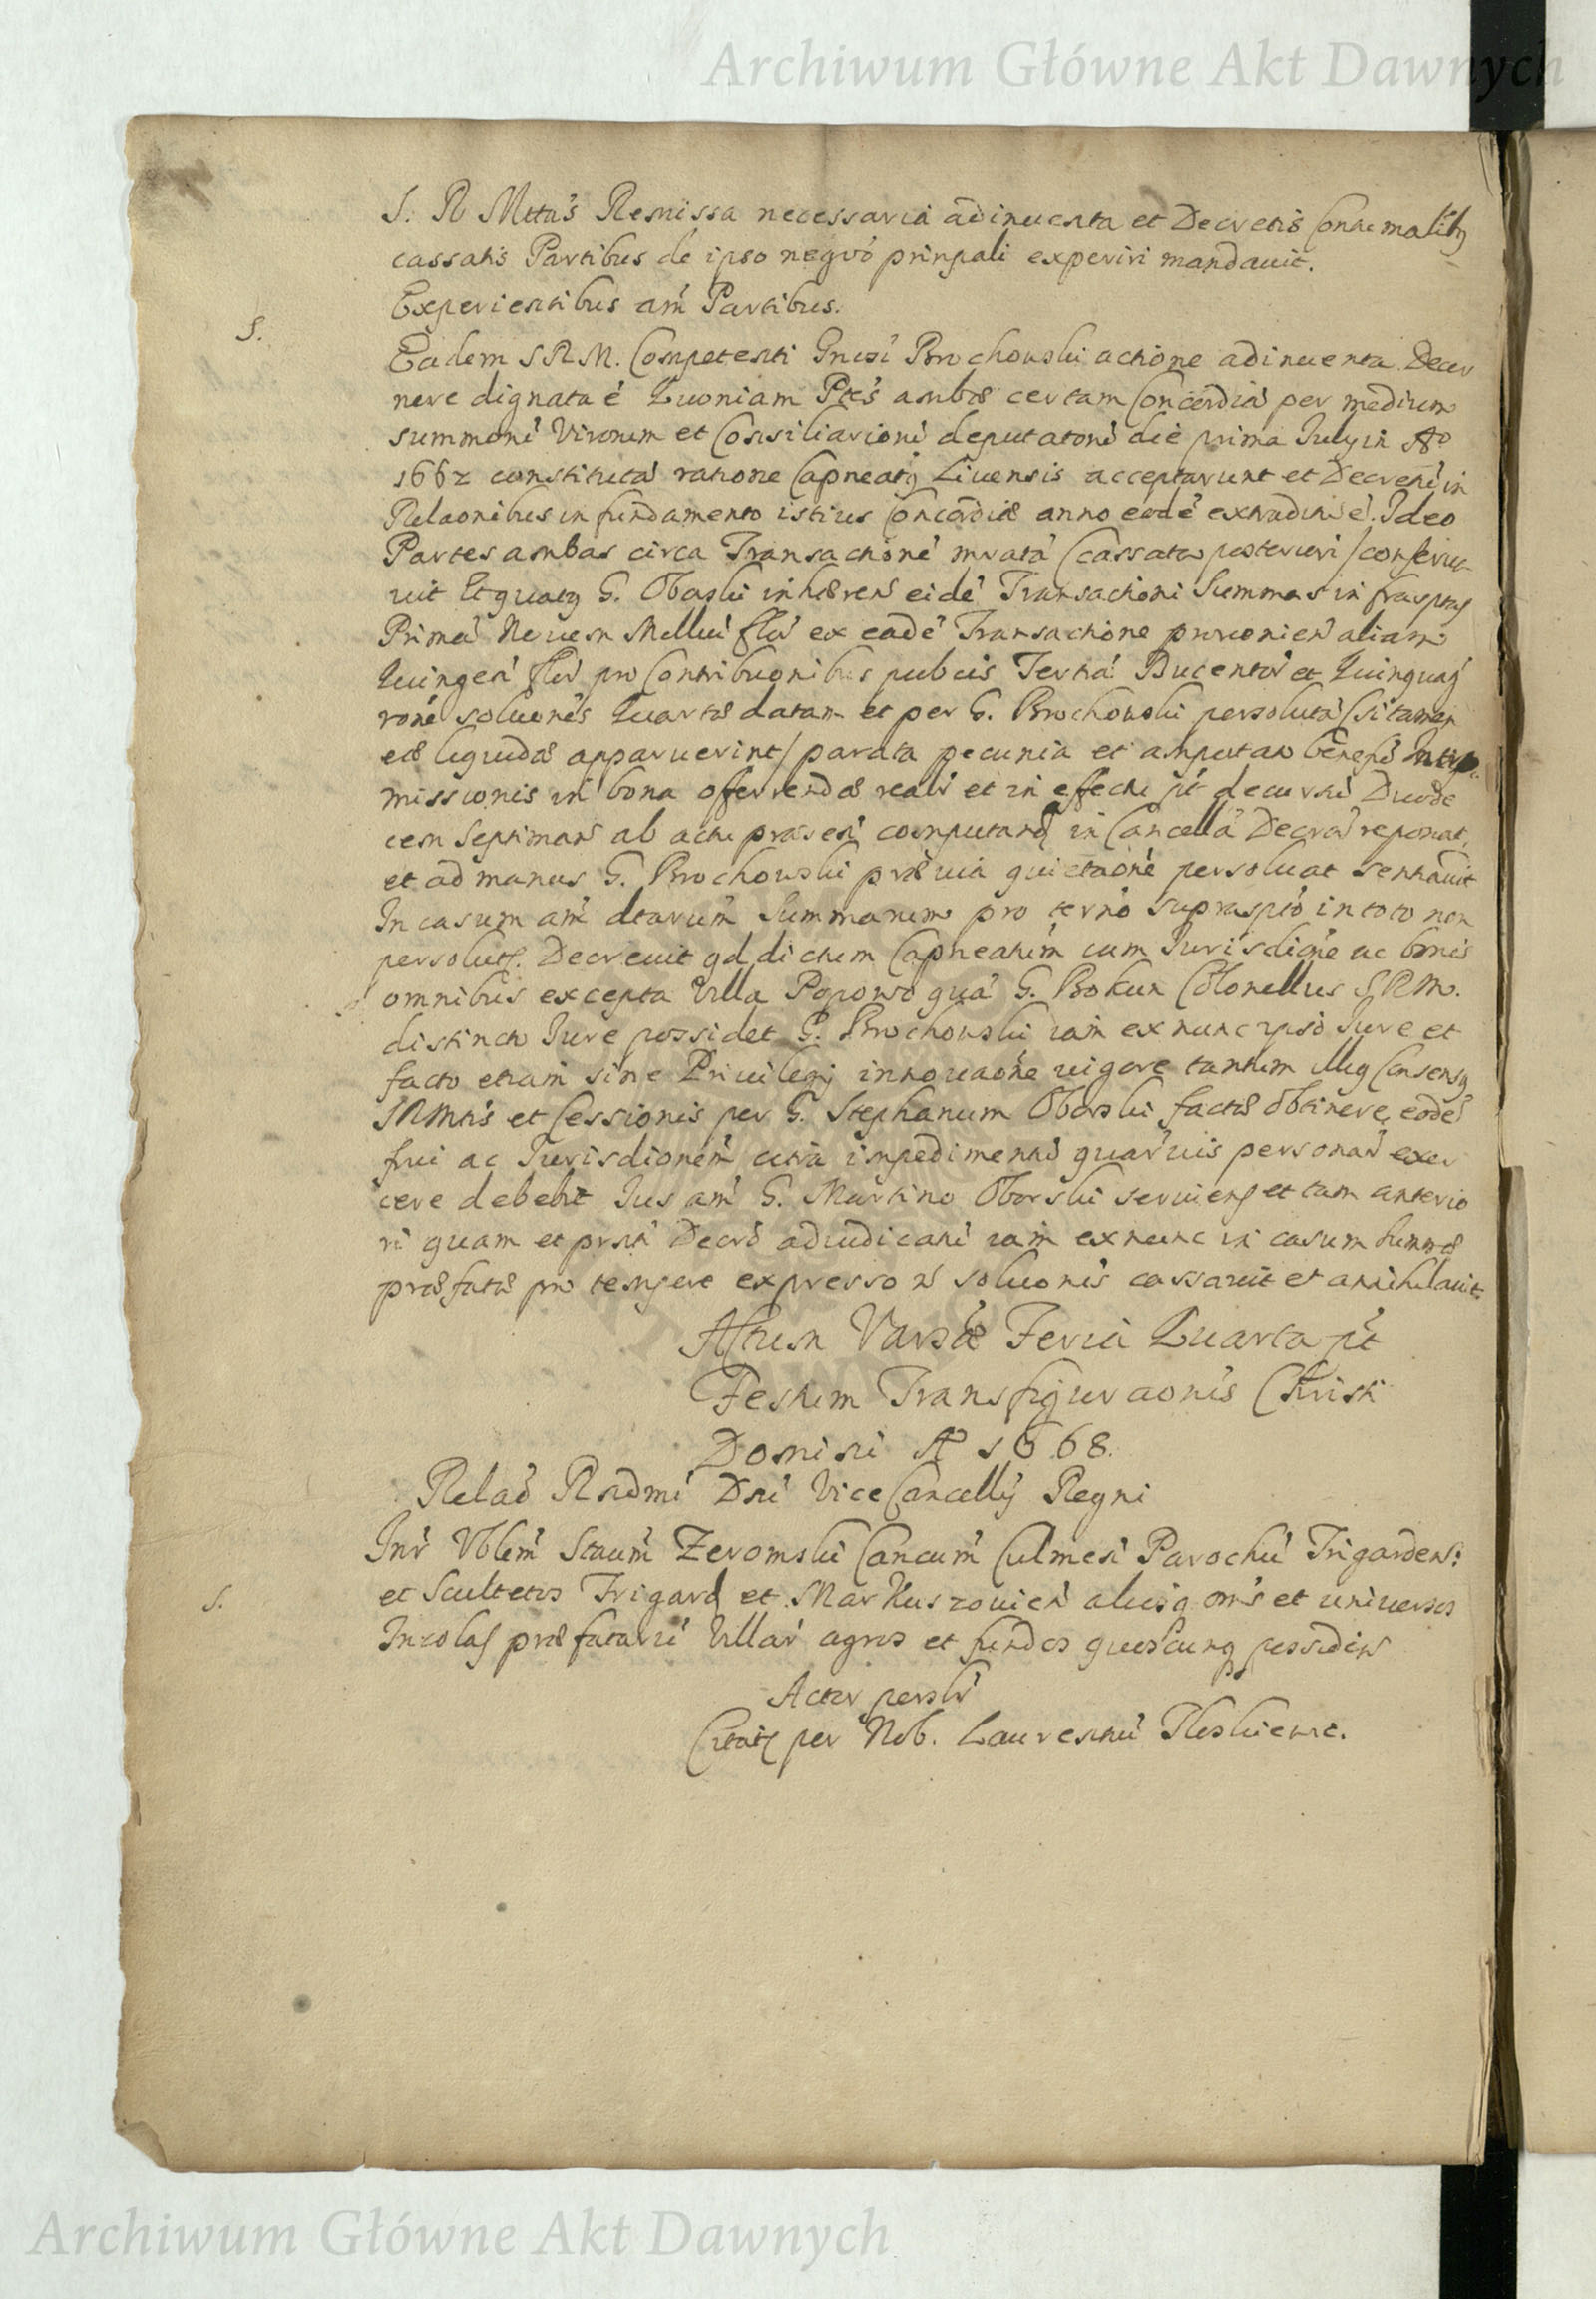 Archiwum Główne Akt Dawnych
S. R Mttis Remissa necessaria adinventa et Decretis Contumatibus
cassatis Partibus de ipso negtio prinpali experiri mandavit.
Experientibus am Partibus.
S.
Eadem SRM. Competenti Gnosi Brochowski actione adinventa Decer
nere dignata e Quoniam Ptes ambæ certam Concordia per medium
summoru Virorum et Consiliarioru deputatoru die prima July in Ao
1662 constituta ratione Capneatus Livensis acceptarunt et Decretu in
Relaonibus in fundamento istius Concordiæ anno eode extraditu e. Ideo
Partes ambas circa Transactione
vit Et G. Oborski inhæren eide Transactioni Summas infrasptas
Prima Novem Mille flo ex eade Transactione provenien aliam
Quingen flo pro Contribuonibus pubcis Tertia Ducentor et Quinquag
rone soluonis Quartæ datam et per G. Brochowski persoluta (si tamen
eæ liquidæ apparuerint) parata pecunia et
missionis in bona offerendæ reali et in effectu decursu Duode
cem Septiman ab actu præsen computand in Cancella Decro reponat,
et ad manus G. Brochowski prævia quietaone persoluat sententiavit
In casum am dtarum Summarum pro termo supraspto in toto non
persolut. Decrevit qd dictum Capneatum cum Jurisdione ac bonis
omnibus excepta Villa Popowo qua G. Bokun Colonellus SRM.
distincto Jure possidet G. Brochowski iam ex nunc ipso Jure et
facto etiam sine Privilegij innovaone vigore tantum illius Consensus
SRMtis et Cessionis per G. Stephanum Oborski factæ obtinere, eode
frui ac Jurisdionem citra impedimento quarvis personar exer
cere debebit Jus am G. Martino Oborski serviens et tam anterio
ri quam et prsnti Decro adiudicatu iam ex nunc in casum summæ
præfatæ pro tempore expresso n soluonis cassavit et annihilavit.
Actum Varsæ Feria Quarta pt
Festum Transfiguraonis Christi
Domini Ao 1668.
Relao Rndmi Dni Vice Cancelly Regni
S.
Inr Vblem Stanm Zeromski Cancum Culmen Parochu Trigarden:
et Scultetos Trigard et Markuszovien aliosq omes et universos
Incolas præfataru Villar agros et fundos quoscunq possiden
Actor persolr
Citats per Nob. Laurentiu
Archiwum Główne Akt Dawnych